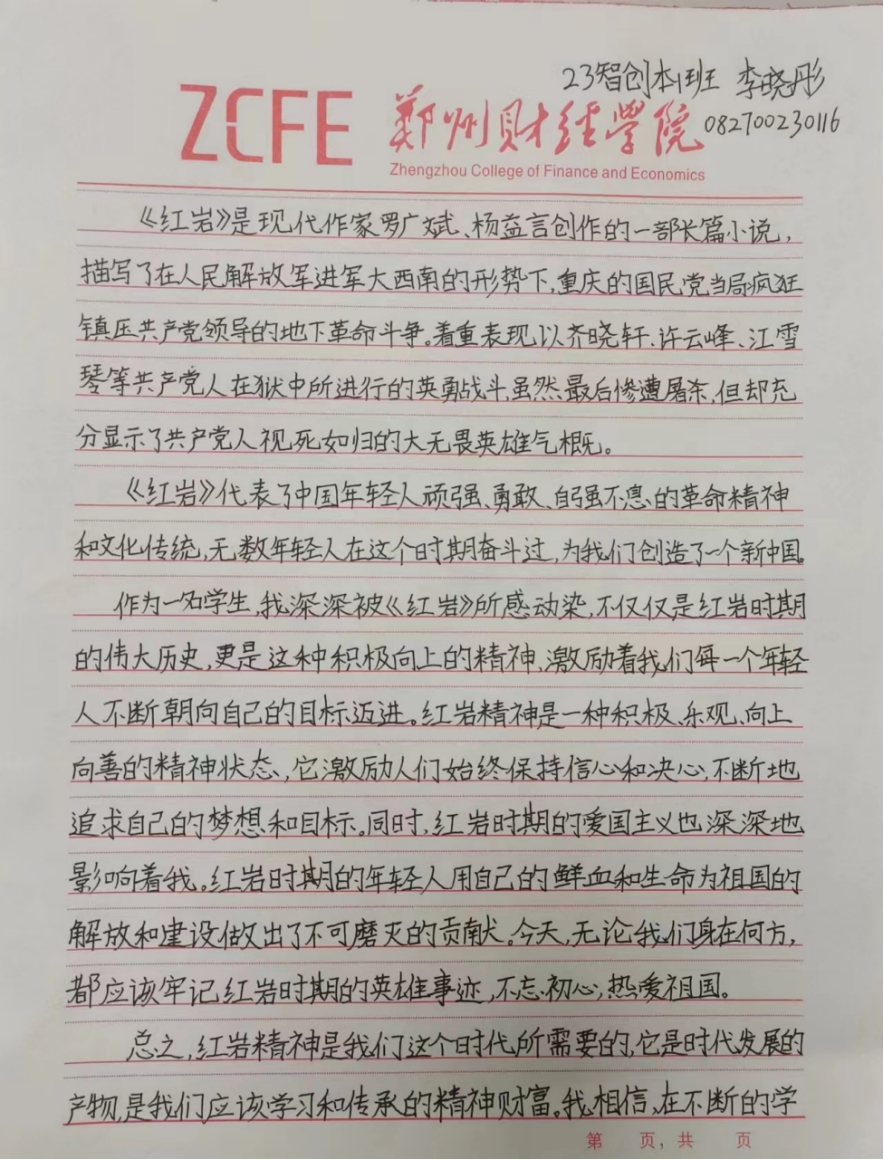 23智创本1班 李晓彤
ZCFE 郑州财经学院 082700230116
Zhengzhou College of Finance and Economics
《红岩》是现代作家罗广斌、杨益言创作的一部长篇小说,
描写了在人民解放军进军大西南的形势下,重庆的国民党当局疯狂
镇压共产党领导的地下革命斗争。着重表现以齐晓轩、许云峰、江雪
琴等共产党人在狱中所进行的英勇战斗,虽然最后惨遭屠杀,但却充
分显示了共产党人视死如归的大无畏英雄气概。
《红岩》代表了中国年轻人顽强、勇敢、自强不息的革命精神
和文化传统,无数年轻人在这个时期奋斗过,为我们创造了一个新中国。
作为一名学生,我深深被《红岩》所感动染,不仅仅是红岩时期
的伟大历史,更是这种积极向上的精神,激励着我们每一个年轻
人不断朝向自己的目标迈进。红岩精神是一种积极、乐观、向上
向善的精神状态,它激励人们始终保持信心和决心,不断地
追求自己的梦想和目标。同时,红岩时期的爱国主义也深深地
影响着我。红岩时期的年轻人用自己的鲜血和生命为祖国的
解放和建设做出了不可磨灭的贡献。今天,无论我们身在何方,
都应该牢记红岩时期的英雄事迹,不忘初心,热爱祖国。
总之,红岩精神是我们这个时代所需要的,它是时代发展的
产物,是我们应该学习和传承的精神财富。我相信,在不断的学
第 页,共 页